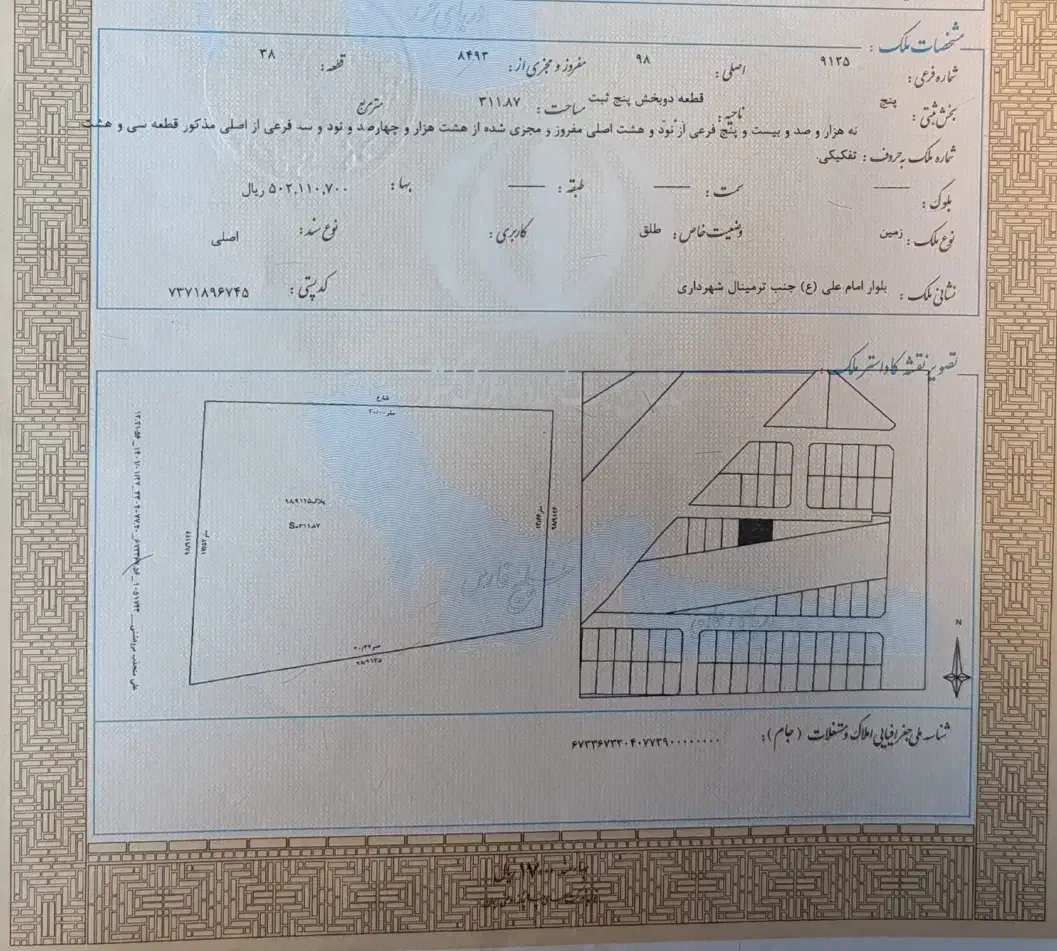 مشخصات ملک :
شماره فرعی : ۹۱۲۵ اصلی : ۹۸ مفروز و مجزی از : ۸۴۹۳ قطعه : ۳۸
بخش ثبتی : پنج ناحیه : قطعه دوبخش پنج ثبت مساحت : ۳۱۱.۸۷ مترمربع
نه هزار و صد و بیست و پنج فرعی از نود و هشت اصلی مفروز و مجزی شده از هشت هزار و چهارصد و نود و سه فرعی از اصلی مذکور قطعه سی و هشت
شماره ملک به حروف : تفکیکی.
بلوک : —— سمت : —— طبقه : —— بها : ۵۰۲,۱۱۰,۷۰۰ ریال
نوع ملک : زمین وضعیت خاص : طلق کاربری : نوع سند : اصلی
نشانی ملک : بلوار امام علی (ع) جنب ترمینال شهرداری کد پستی : ۷۳۷۱۸۹۶۷۴۵
تصویر نقشه کاداستر ملک :
شارع
۲۰/۰۰ متر
پلاک ۹۸/۹۱۲۵
S=۳۱۱.۸۷
متر
متر
متر ۲۰/۲۲
N
خلیج فارس
شناسه ملی جغرافیایی املاک و مستغلات (جام) : ۶۷۳۳۶۷۳۳۰۴۰۷۷۳۹۰۰۰۰۰۰۰۰۰